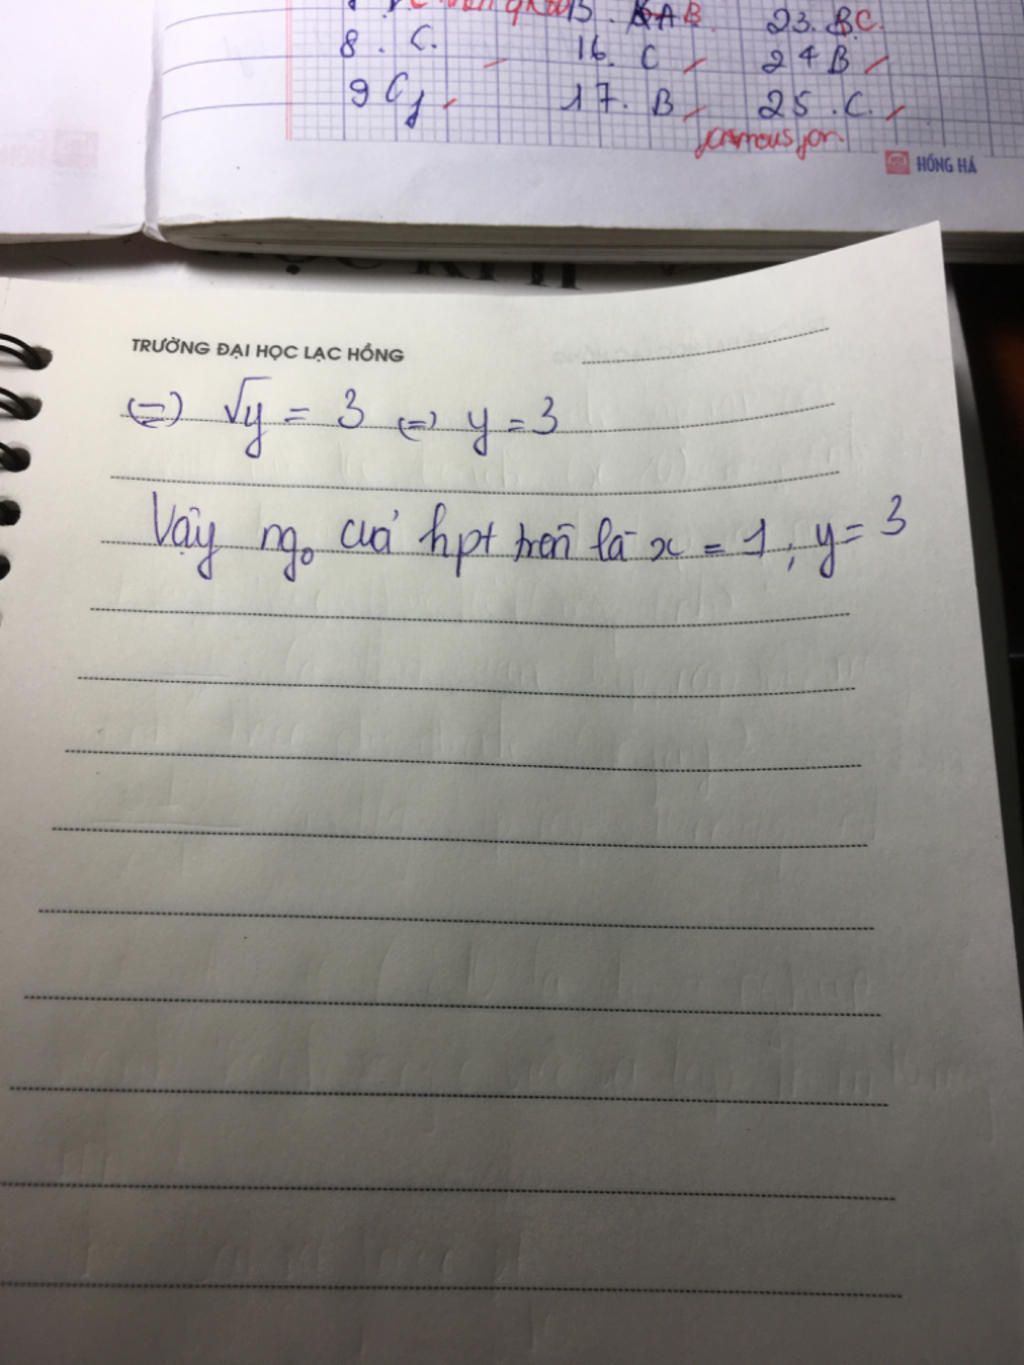 15. A B 23. B C.
8. C. 16. C 24 B
9 C 17. B 25. C.
HỒNG HÀ
TRƯỜNG ĐẠI HỌC LẠC HỒNG
(=) √y = 3 (=) y = 3
Vậy ngo của hpt trên là x = 1; y = 3